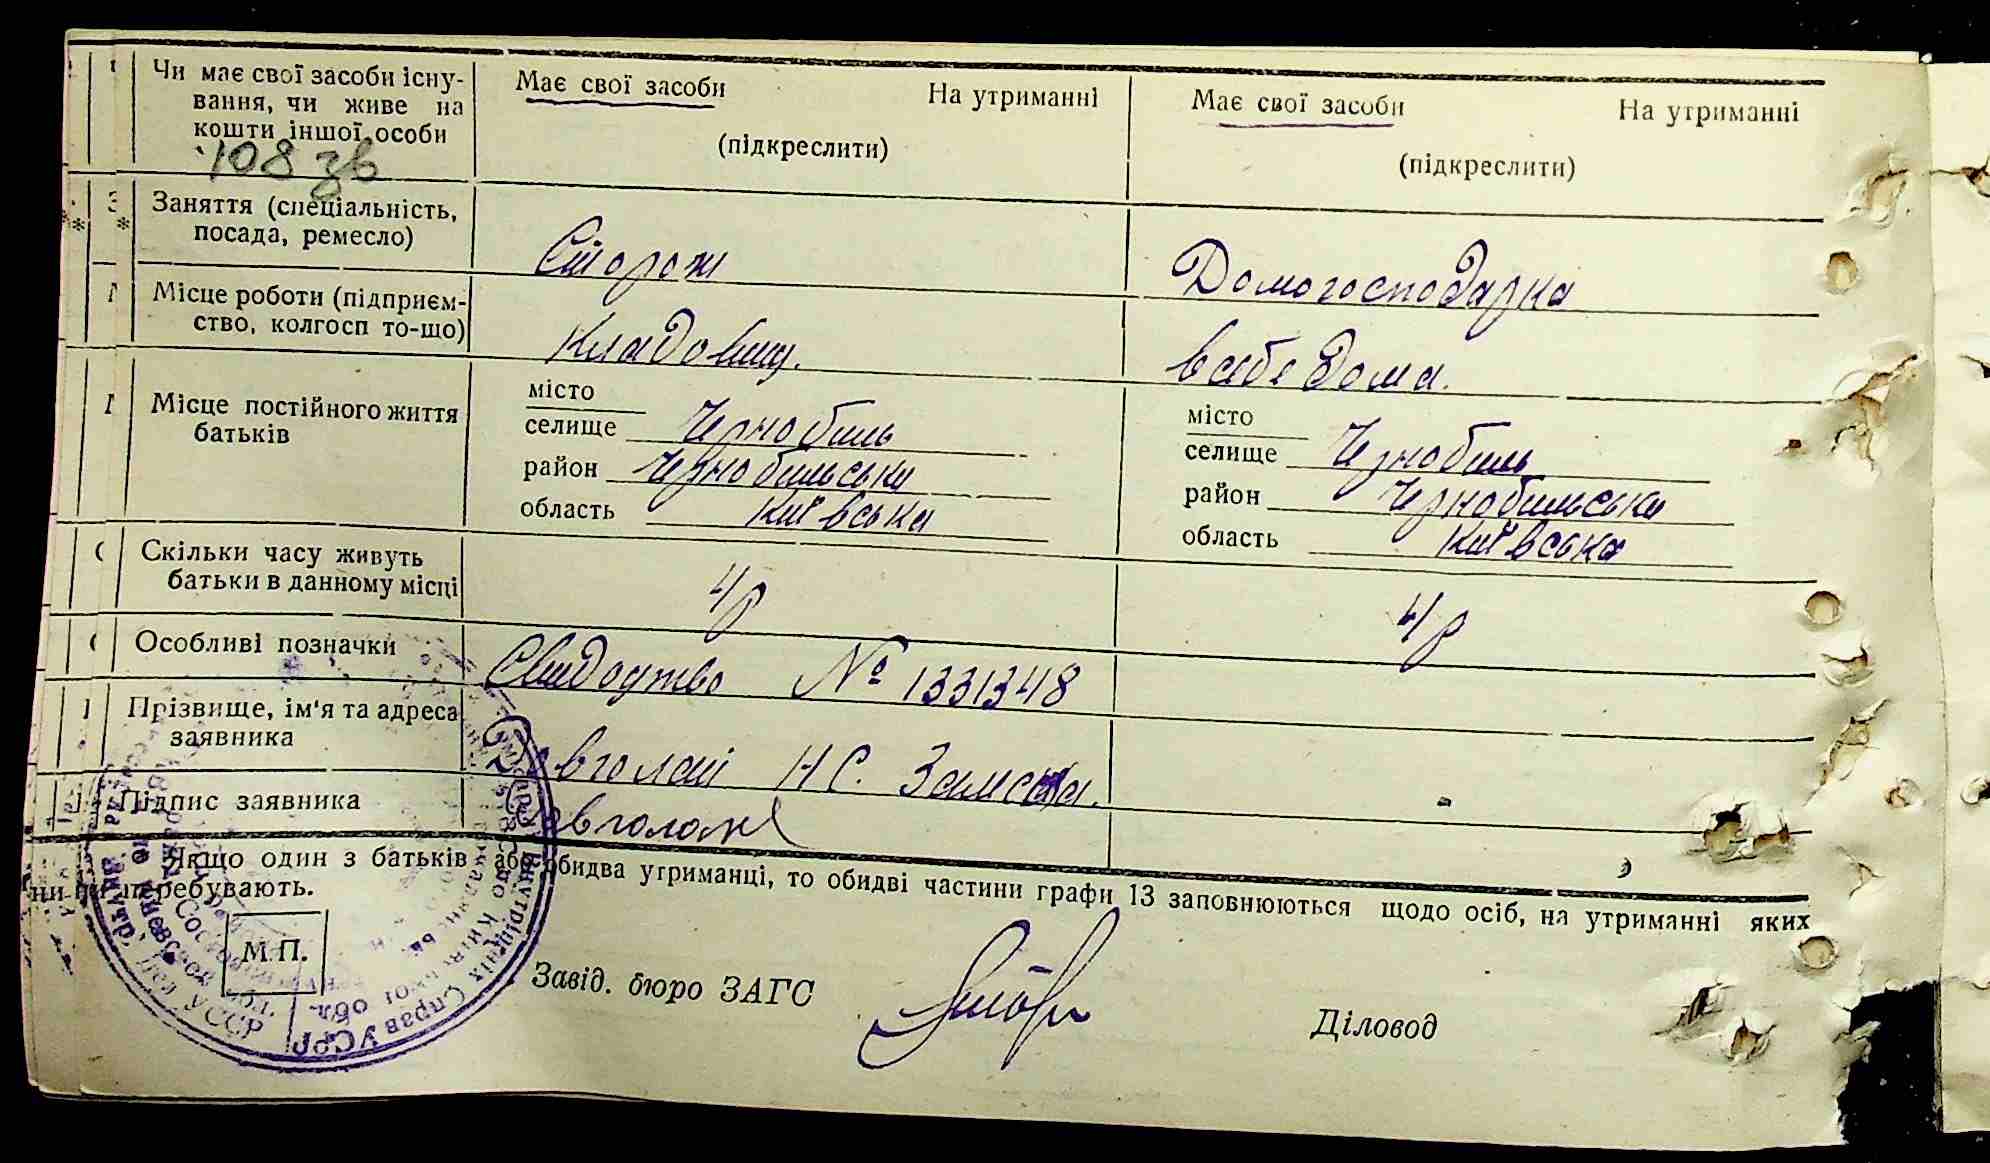 Чи має свої засоби існу-
вання, чи живе на
кошти іншої особи
108 зв
Має свої засоби На утриманні
(підкреслити)
Має свої засоби На утриманні
(підкреслити)
Заняття (спеціальність,
посада, ремесло)
Сторож
Домогосподарка
Місце роботи (підприєм-
ство, колгосп то-що)
Кладовищ.
в себе дома.
Місце постійного життя
батьків
місто
селище Чернобиль
район Чернобильськи
область Київська
місто
селище Чернобиль
район Чернобильськи
область Київська
Скільки часу живуть
батьки в данному місці
4 р
4 р
Особливі позначки
Свидоцтво № 1331348
Прізвище, ім'я та адреса
заявника
Н С.
Підпис заявника
Якщо один з батьків або обидва утриманці, то обидві частини графи 13 заповнюються щодо осіб, на утриманні яких
перебувають.
М.П.
Завід. бюро ЗАГС
Діловод
Внутрішніх Справ УСРР